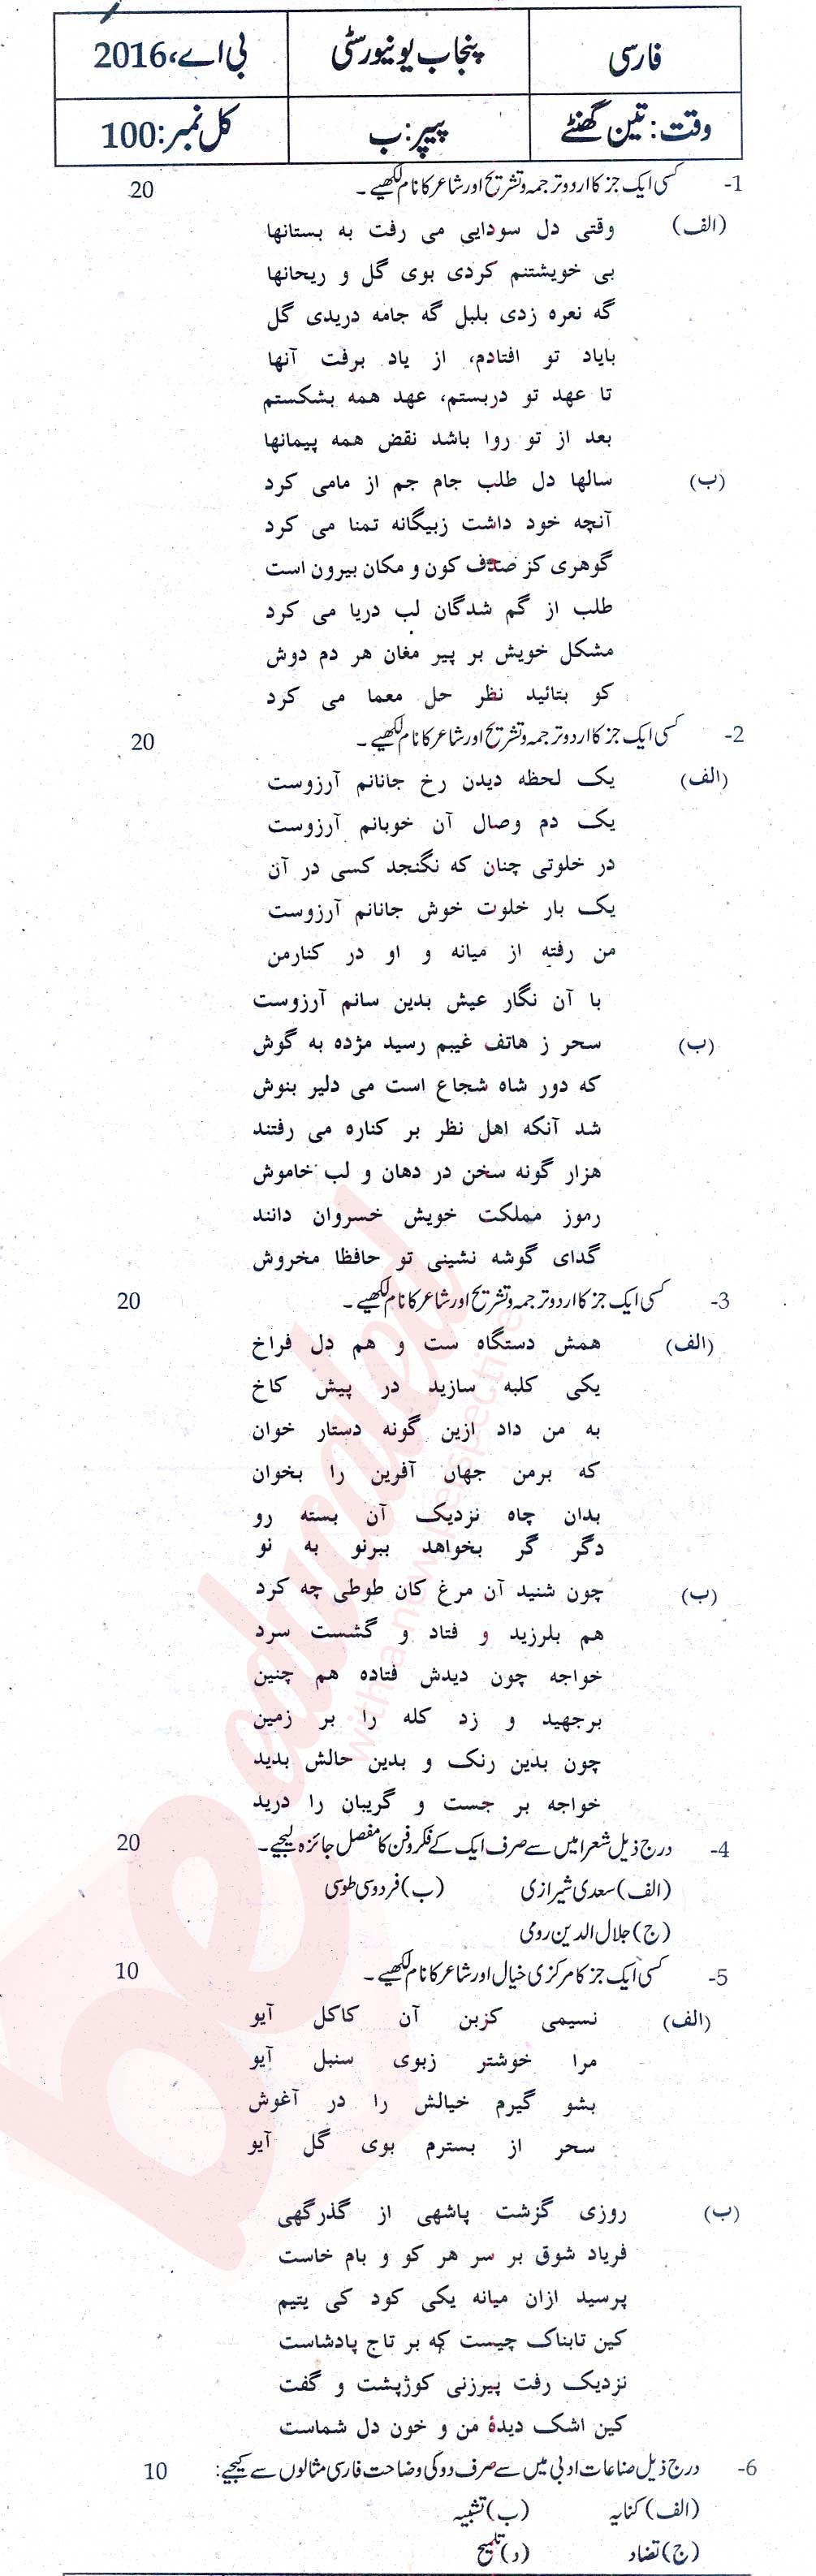 فارسی پنجاب یونیورسٹی بی اے، 2016
وقت: تین گھنٹے پیپر: ب کل نمبر: 100
1- کسی ایک جز کا اردو ترجمہ و تشریح اور شاعر کا نام لکھیے۔ 20
(الف) وقتی دل سودایی می رفت به بستانها
بی خویشتنم کردی بوی گل و ریحانها
گه نعره زدی بلبل گه جامه دریدی گل
بایاد تو افتادم، از یاد برفت آنها
تا عهد تو دربستم، عهد همه بشکستم
بعد از تو روا باشد نقض همه پیمانها
(ب) سالها دل طلب جام جم از مامی کرد
آنچه خود داشت زبیگانه تمنا می کرد
گوهری کز صدف کون و مکان بیرون است
طلب از گم شدگان لب دریا می کرد
مشکل خویش بر پیر مغان هر دم دوش
کو بتائید نظر حل معما می کرد
2- کسی ایک جز کا اردو ترجمہ و تشریح اور شاعر کا نام لکھیے۔ 20
(الف) یک لحظه دیدن رخ جانانم آرزوست
یک دم وصال آن خوبانم آرزوست
در خلوتی چنان که نگنجد کسی در آن
یک بار خلوت خوش جانانم آرزوست
من رفته از میانه و او در کنارمن
با آن نگار عیش بدین سانم آرزوست
(ب) سحر ز هاتف غیبم رسید مژده به گوش
که دور شاه شجاع است می دلیر بنوش
شد آنکه اهل نظر بر کناره می رفتند
هزار گونه سخن در دهان و لب خاموش
رموز مملکت خویش خسروان دانند
گدای گوشه نشینی تو حافظا مخروش
3- کسی ایک جز کا اردو ترجمہ و تشریح اور شاعر کا نام لکھیے۔ 20
(الف) همش دستگاه ست و هم دل فراخ
یکی کلبه سازید در پیش کاخ
به من داد ازین گونه دستار خوان
که برمن جهان آفرین را بخوان
بدان چاه نزدیک آن بسته رو
دگر گر بخواهد ببرنو به نو
(ب) چون شنید آن مرغ کان طوطی چه کرد
هم بلرزید و فتاد و گشست سرد
خواجه چون دیدش فتاده هم چنین
برجهید و زد کله را بر زمین
چون بدین رنک و بدین حالش بدید
خواجه بر جست و گریبان را درید
4- درج ذیل شعرا میں سے صرف ایک کے فکر و فن کا مفصل جائزہ لیجیے۔ 20
(الف) سعدی شیرازی (ب) فردوسی طوسی
(ج) جلال الدین رومی
5- کسی ایک جز کا مرکزی خیال اور شاعر کا نام لکھیے۔ 10
(الف) نسیمی کزبن آن کاکل آیو
مرا خوشتر زبوی سنبل آیو
بشو گیرم خیالش را در آغوش
سحر از بسترم بوی گل آیو
(ب) روزی گزشت پاشهی از گذرگهی
فریاد شوق بر سر هر کو و بام خاست
پرسید ازان میانه یکی کود کی یتیم
کین تابناک چیست که بر تاج پادشاست
نزدیک رفت پیرزنی کوژپشت و گفت
کین اشک دیدهٔ من و خون دل شماست
6- درج ذیل صناعات ادبی میں سے صرف دو کی وضاحت فارسی مثالوں سے کیجیے: 10
(الف) کنایہ (ب) تشبیہ
(ج) تضاد (د) تلمیح
beeducated
with a new perspective